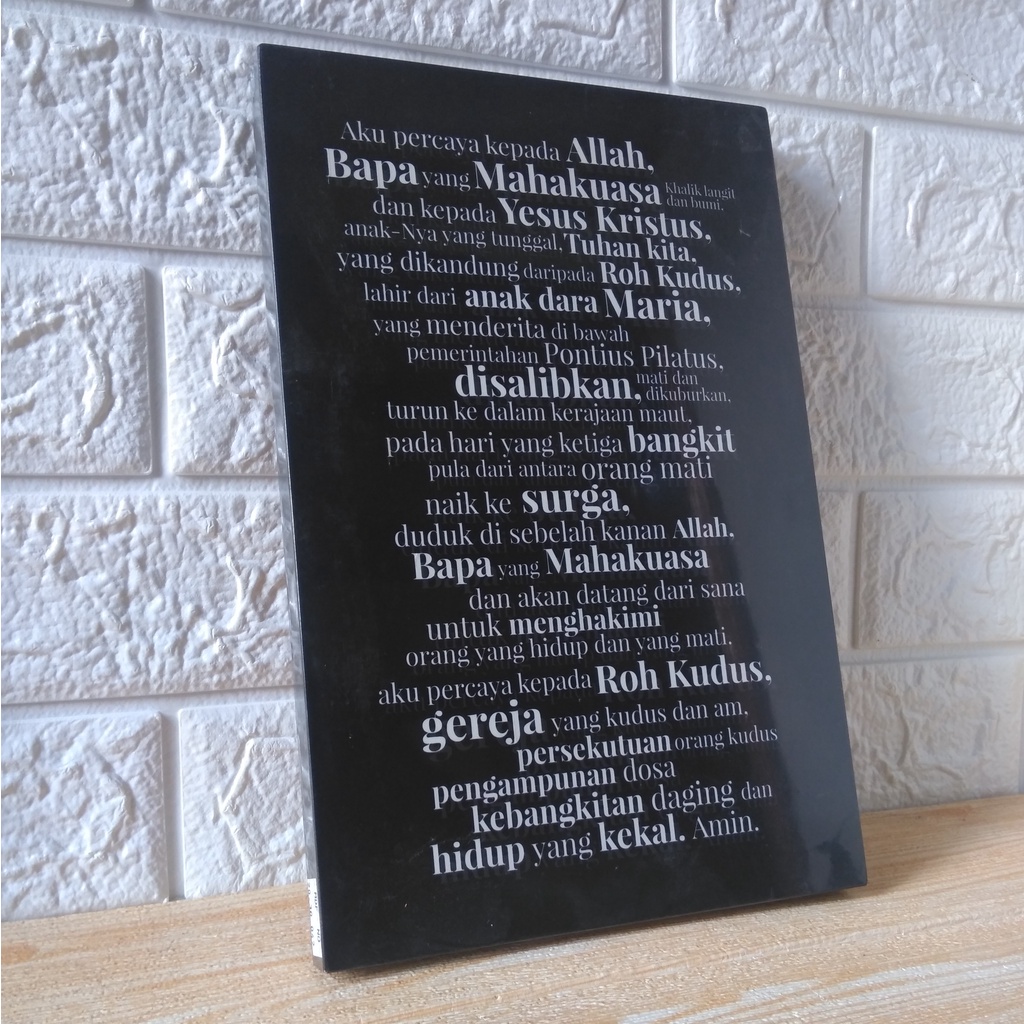 Aku percaya kepada Allah,
Bapa yang Mahakuasa Khalik langit dan bumi.
dan kepada Yesus Kristus,
anak-Nya yang tunggal, Tuhan kita,
yang dikandung daripada Roh Kudus,
lahir dari anak dara Maria,
yang menderita di bawah
pemerintahan Pontius Pilatus,
disalibkan, mati dan dikuburkan,
turun ke dalam kerajaan maut,
pada hari yang ketiga bangkit
pula dari antara orang mati
naik ke surga,
duduk di sebelah kanan Allah,
Bapa yang Mahakuasa
dan akan datang dari sana
untuk menghakimi
orang yang hidup dan yang mati.
aku percaya kepada Roh Kudus,
gereja yang kudus dan am,
persekutuan orang kudus
pengampunan dosa
kebangkitan daging dan
hidup yang kekal. Amin.